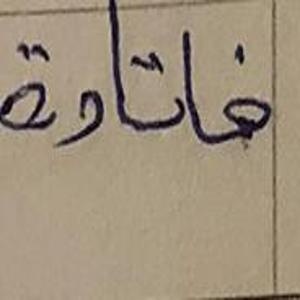 خاتادة